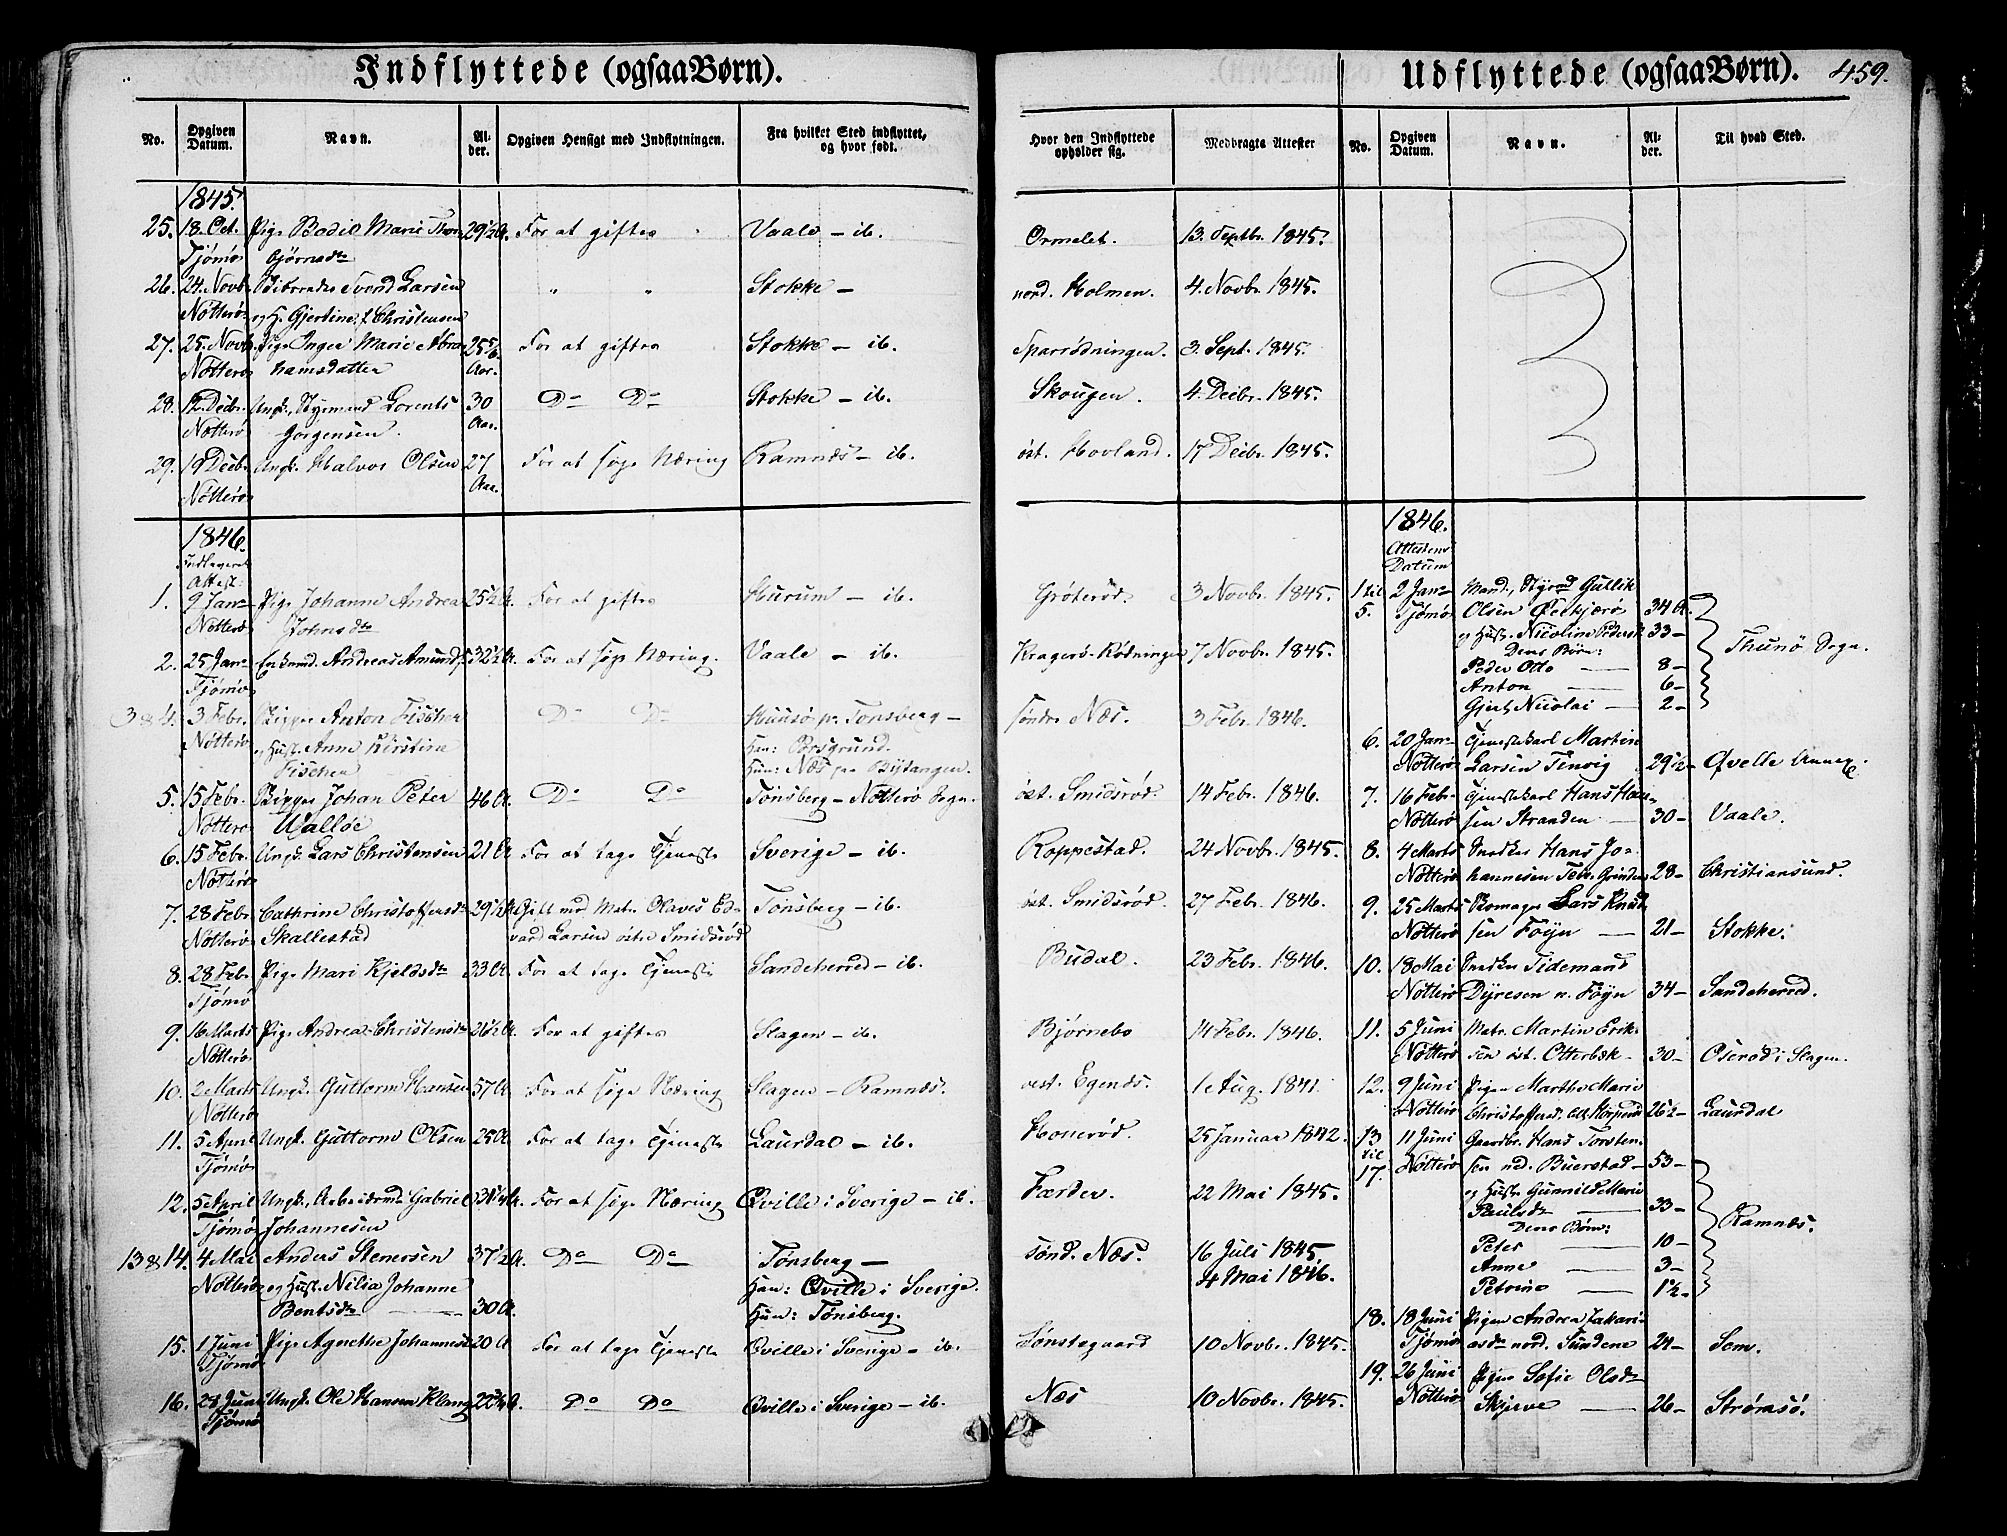 Indflyttede (ogsaa Børn).
No. Opgiven Datum. Navn. Alder. Opgiven Hensigt med Indflytningen. Fra hvilket Sted indflyttet, og hvor født.
1845.
25. 18. Oct. Pige Bodil Marie Thor 29½ A. For at giftes Vaale - ib.
Tjømø bjørnsdtr
26. 24. Novb. Svend Larsen " " Stokke -
Nøtterø og H. Gjertine f. Christensen
27. 25. Novb. Pige Inger Marie Abra 25 5/6 For at giftes Stokke - ib.
Nøtterø hamsdatter Aar.
28. 12. Decbr. Ungk., Styrmand Lorents 30 Do Do Stokke - ib.
Nøtterø Jørgensen. Aar.
29. 19 Decbr. Ungk. Halvor Olsen 27 For at søge Næring Ramnæs - ib.
Nøtterø Aar.
1846.
Indleveret
Attest:
1. 9 Jan. Pige Johanne Andrea 25½ A. For at giftes Hurum - ib.
Nøtterø Johnsdtr
2. 25 Jan. Enkemd. Andreas Amunds. 32½ A. For at søge Næring. Vaale - ib.
Tjømø
3 & 4. 3 Febr. Skipper Anton Fischer Do Do Huusø pr. Tønsberg -
Nøtterø og Hust. Anne Kirstine Han: Porsgrund.
Fischer Hun: Næs paa Bytangen.
5. 15 Febr. Skipper Johan Peter 46 A. Do Do Tønsberg - Nøtterø Sogn.
Nøtterø Walløe
6. 15 Febr. Ungk. Lars Christensen 21 A. For at tage Tjeneste Sverige - ib.
Nøtterø
7. 28 Febr. Cathrine Christophersdr 29½ A. Gift med Matr. Olaves Ed- Tønsberg - ib.
Nøtterø Skallestad vard Larsen østre Smidsrød
8. 28 Feb. Pige Mari Kjeldsdr 33 A. For at tage Tjeneste Sandeherred - ib.
Tjømø
9. 16 Marts Pige Andrea Christensdr 26½ A. For at giftes Slagen - ib.
Nøtterø
10. 2 Marts Ungk. Guttorm Hansen 57 A. For at søge Næring Slagen - Ramnæs.
Nøtterø
11. 5 April Ungk. Guttorm Olsen 25 A. For at tage Tjeneste Laurdal - ib.
Tjømø
12. 5 April Ungk., Arbeidsmd Gabriel 31¼ A. For at søge Næring Qville i Sverige - ib.
Tjømø Johannesen
13 & 14. 4 Mai Anders Stenersen 37½ A. Do Do Tønsberg -
Nøtterø og Hust. Nilia Johanne Han: Qville i Sverige.
Bentsdtr 30 A. Hun: Tønsberg.
15. 1 Juni Pige Agnethe Johannesd 20 A For at tage Tjeneste Qville i Sverige - ib.
Tjømø
16. 28 Juni Ungk. Ole Hansen Klang 22¾ A. Do Do Qville i Sverige - ib.
Tjømø
Hvor den Indflyttede opholder sig. Medbragte Attester
Ormelet. 13. Septbr. 1845.
nord. Holmen. 4. Novbr. 1845.
Sparrødningen. 3. Sept. 1845.
Skougen. 4. Decbr. 1845.
øst. Hovland. 17 Decbr. 1845.
Grøterød. 3 Novbr. 1845.
Kragerø-Rødningen 7 Novbr. 1845.
søndre Næs. 3 Febr. 1846.
øst. Smidsrød. 14 Febr. 1846.
Roppestad. 24 Novbr. 1845.
øst. Smidsrød. 27 Febr. 1846.
Budal. 23 Febr. 1846.
Bjørnebo 14 Febr. 1846.
vest. Egenæs. 1 Aug. 1841.
Honerød. 25 Januar 1842.
Færder. 22 Mai 1845.
sønd. Næs. 16 Juli 1845.
4 Mai 1846.
Sønstegaard 10 Novbr. 1845.
Næs 10 Novbr. 1845.
Udflyttede (ogsaa Børn). 459.
No. Opgiven Datum. Navn. Alder. Til hvad Sted.
1846.
Attestens
Datum
1 til 2 Jan. Mand, Styrmd Gullik
5. Tjømø Olsen Østkjærø 34 A.
og Hust. Nicoline Pedersd 33 -
Deres Børn: Thunø Sogn.
Peder Otto 8 -
Anton 6 -
Gjert Nicolai 2 -
6. 20 Jan. Tjenestekarl Martin
Nøtterø Larsen Tenvig 29½ - Qvelle Annex.
7. 16 Febr. Tjenestekarl Hans Han-
Nøtterø sen Stranden 30 - Vaale.
8. 4 Marts Snedker Hans Jo-
Nøtterø hannesen Teie Grinden 28 - Christiansund.
9. 25 Marts Skomager Lars Knud
Nøtterø sen Føyn 21 - Stokke.
10. 18 Mai Snedker Tidemand
Nøtterø Dyresen n. Føyn 34 - Sandeherred.
11. 5 Juni Matr. Martin Erik-
Nøtterø sen øst. Otterbæk 30 - Oserød i Slagen.
12. 9 Juni Pigen Marthe Marie
Nøtterø Christoffersd. 26½ - Laurdal
13 11 Juni Gaardbr. Hans Torsten-
til Nøtterø sen ned. Buerstad 53 -
17. og Hust. Gunnild Marie
Paulsdr 33 -
Deres Børn: Ramnæs.
Peter 10 -
Anne 3 -
Petrine 1½ -
18. 18 Juni Pigen Andrea Zakari-
Tjømø asdr nord. Sundene 24 - Sem.
19. 26 Juni Pigen Sofie Olsdr
Nøtterø Skjerve 26 - Strømsø.